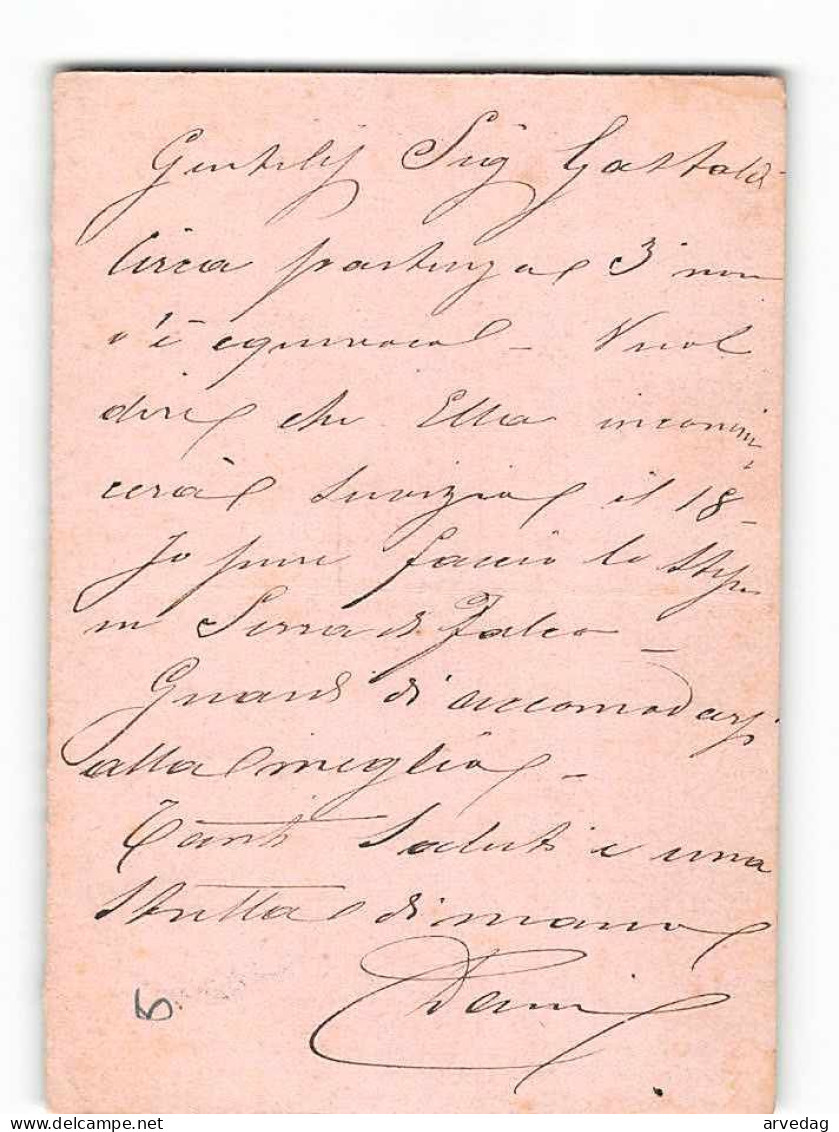 Sig Gastaldi
Circa partenza 3 non
c'è equivoco - Vuol
dire che Ella incomin,
cerà servizio il 18 -
Io pure faccio lo stesso
in Serra di Falco -
Guardi di accomodarsi
alla meglio -
Tanti saluti e una
stretta di mano
6
delcampe.net
arvedag